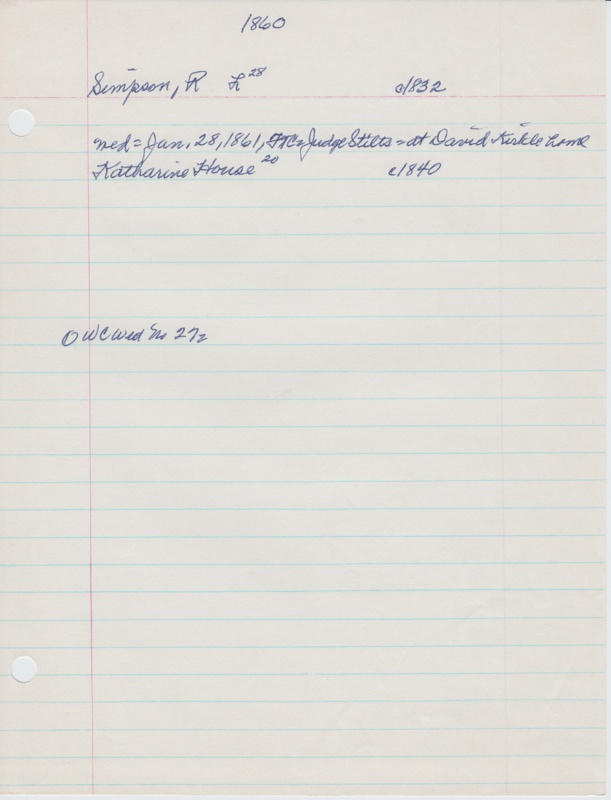 1860
Simpson, R F 28 c1832
wed = Jan. 28, 1861, = Judge Stilts = at David Kirkle home
Katharine House 20 c1840
O WC Wed No 272